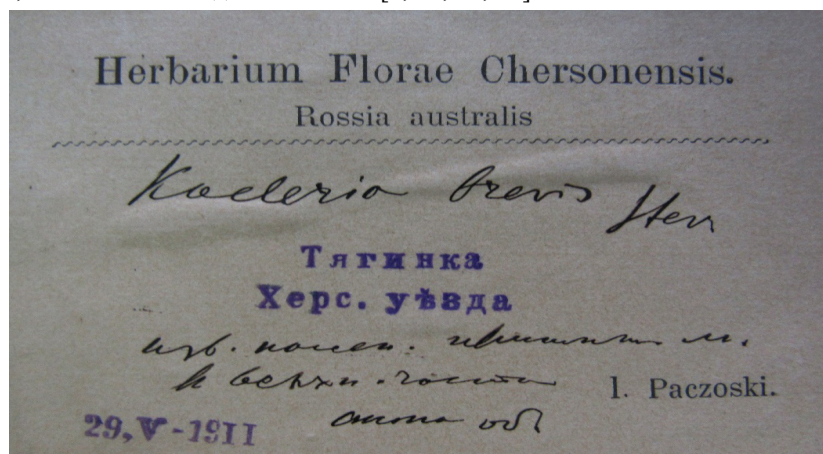 Herbarium Florae Chersonensis.
Rossia australis
Koeleria brevis Stev
Тягинка
Херс. уѣзда
изв.
в верхн. части l. Paczoski.
29, V-1911